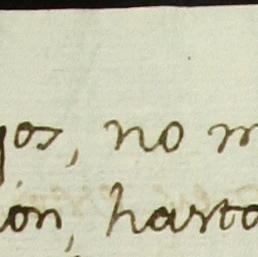 gos, no m
ion, harto